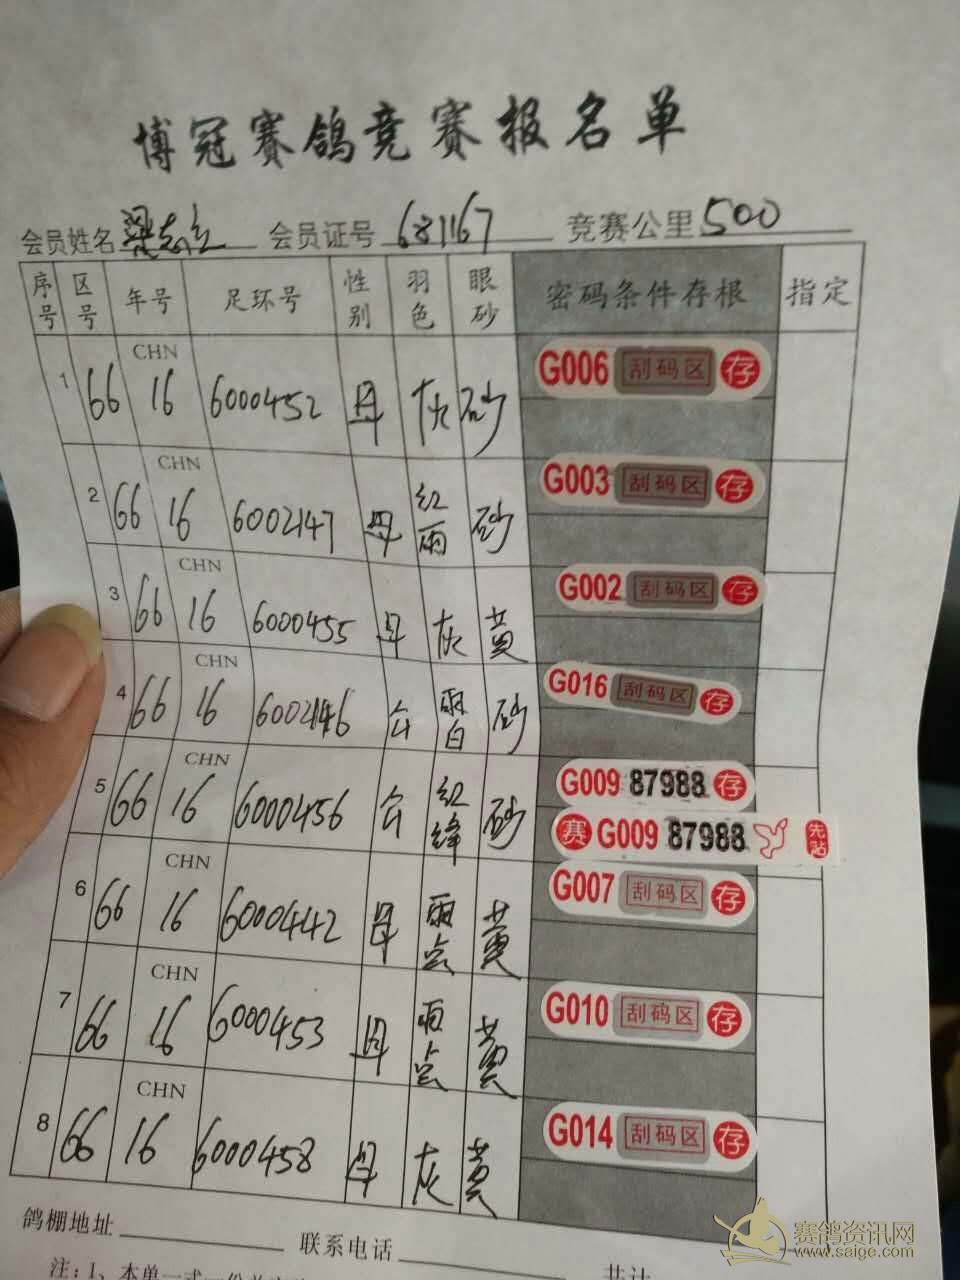 博冠赛鸽竞赛报名单
会员姓名 梁志立 会员证号 681167 竞赛公里 500
序号 区号 年号 足环号 性别 羽色 眼砂 密码条件存根 指定
1 66 CHN 16 6000452 母 灰 砂 G006 刮码区 存
2 66 CHN 16 6002147 母 红雨 砂 G003 刮码区 存
3 66 CHN 16 6000455 母 灰 黄 G002 刮码区 存
4 66 CHN 16 6002146 公 雨白 砂 G016 刮码区 存
5 66 CHN 16 6000456 公 红绛 砂 G009 87988 存
赛 G009 87988 先贴
6 66 CHN 16 6000442 母 雨点 黄 G007 刮码区 存
7 66 CHN 16 6000453 母 雨点 黄 G010 刮码区 存
8 66 CHN 16 6000458 母 灰 黄 G014 刮码区 存
鸽棚地址 联系电话 共计
注:1、本单一式一份
赛鸽资讯网
www.saige.com